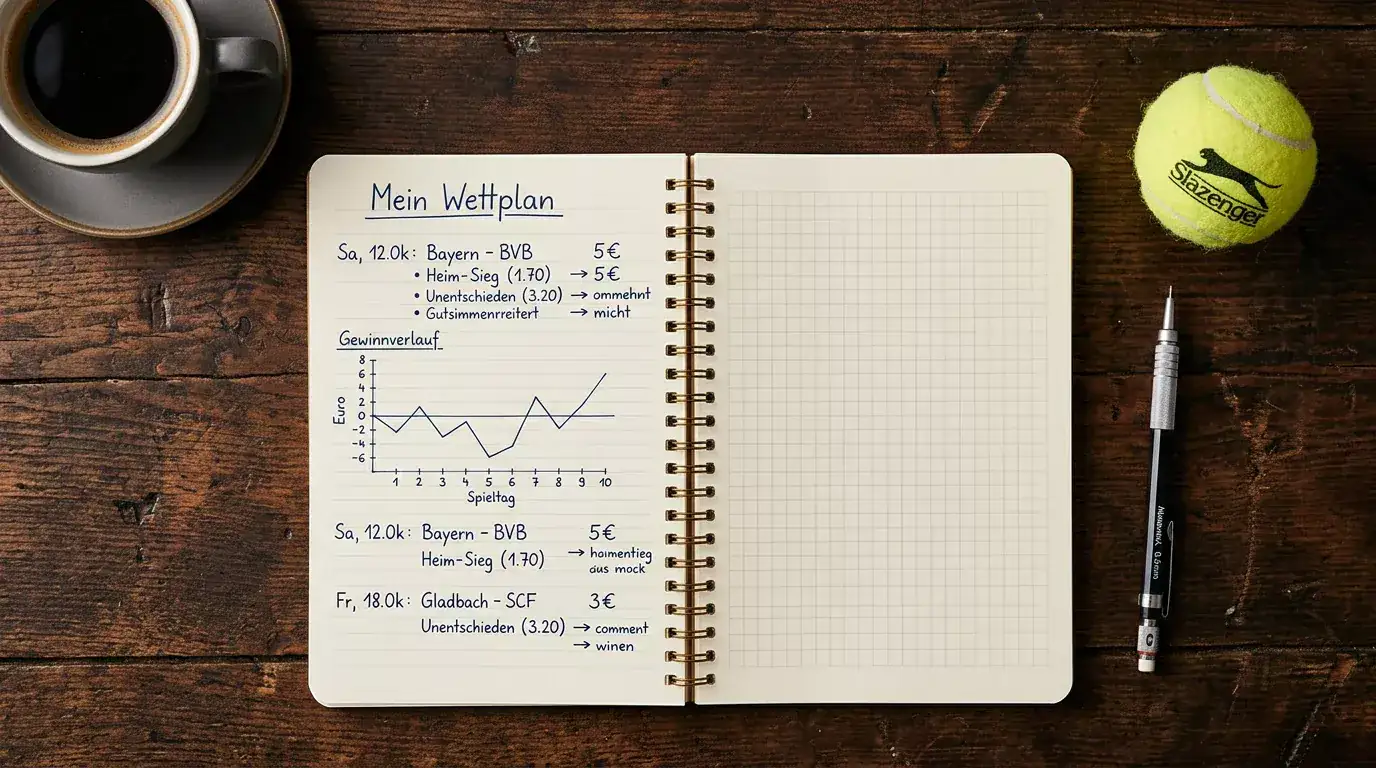 Mein Wettplan
Sa, 12.0k: Bayern – BVB 5€
• Heim-Sieg (1.70) → 5€
• Unentschieden (3.20) → ommehnt
• Gutsimmenrreitert → micht
Gewinnverlauf
8
6
4
2
0
-2
-4
-6
Euro
1 2 3 4 5 6 7 8 9 10
Spieltag
Sa, 12.0k: Bayern – BVB 5€
Heim-Sieg (1.70) → hoimentieg
aus mock
Fr, 18.0k: Gladbach – SCF 3€
Unentschieden (3.20) → comment
→ winen
Slazenger